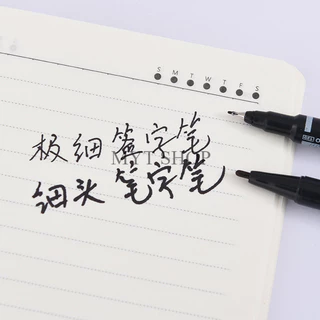 S M T W T F S
极细签字笔
MYT SHOP
细头 笔字笔